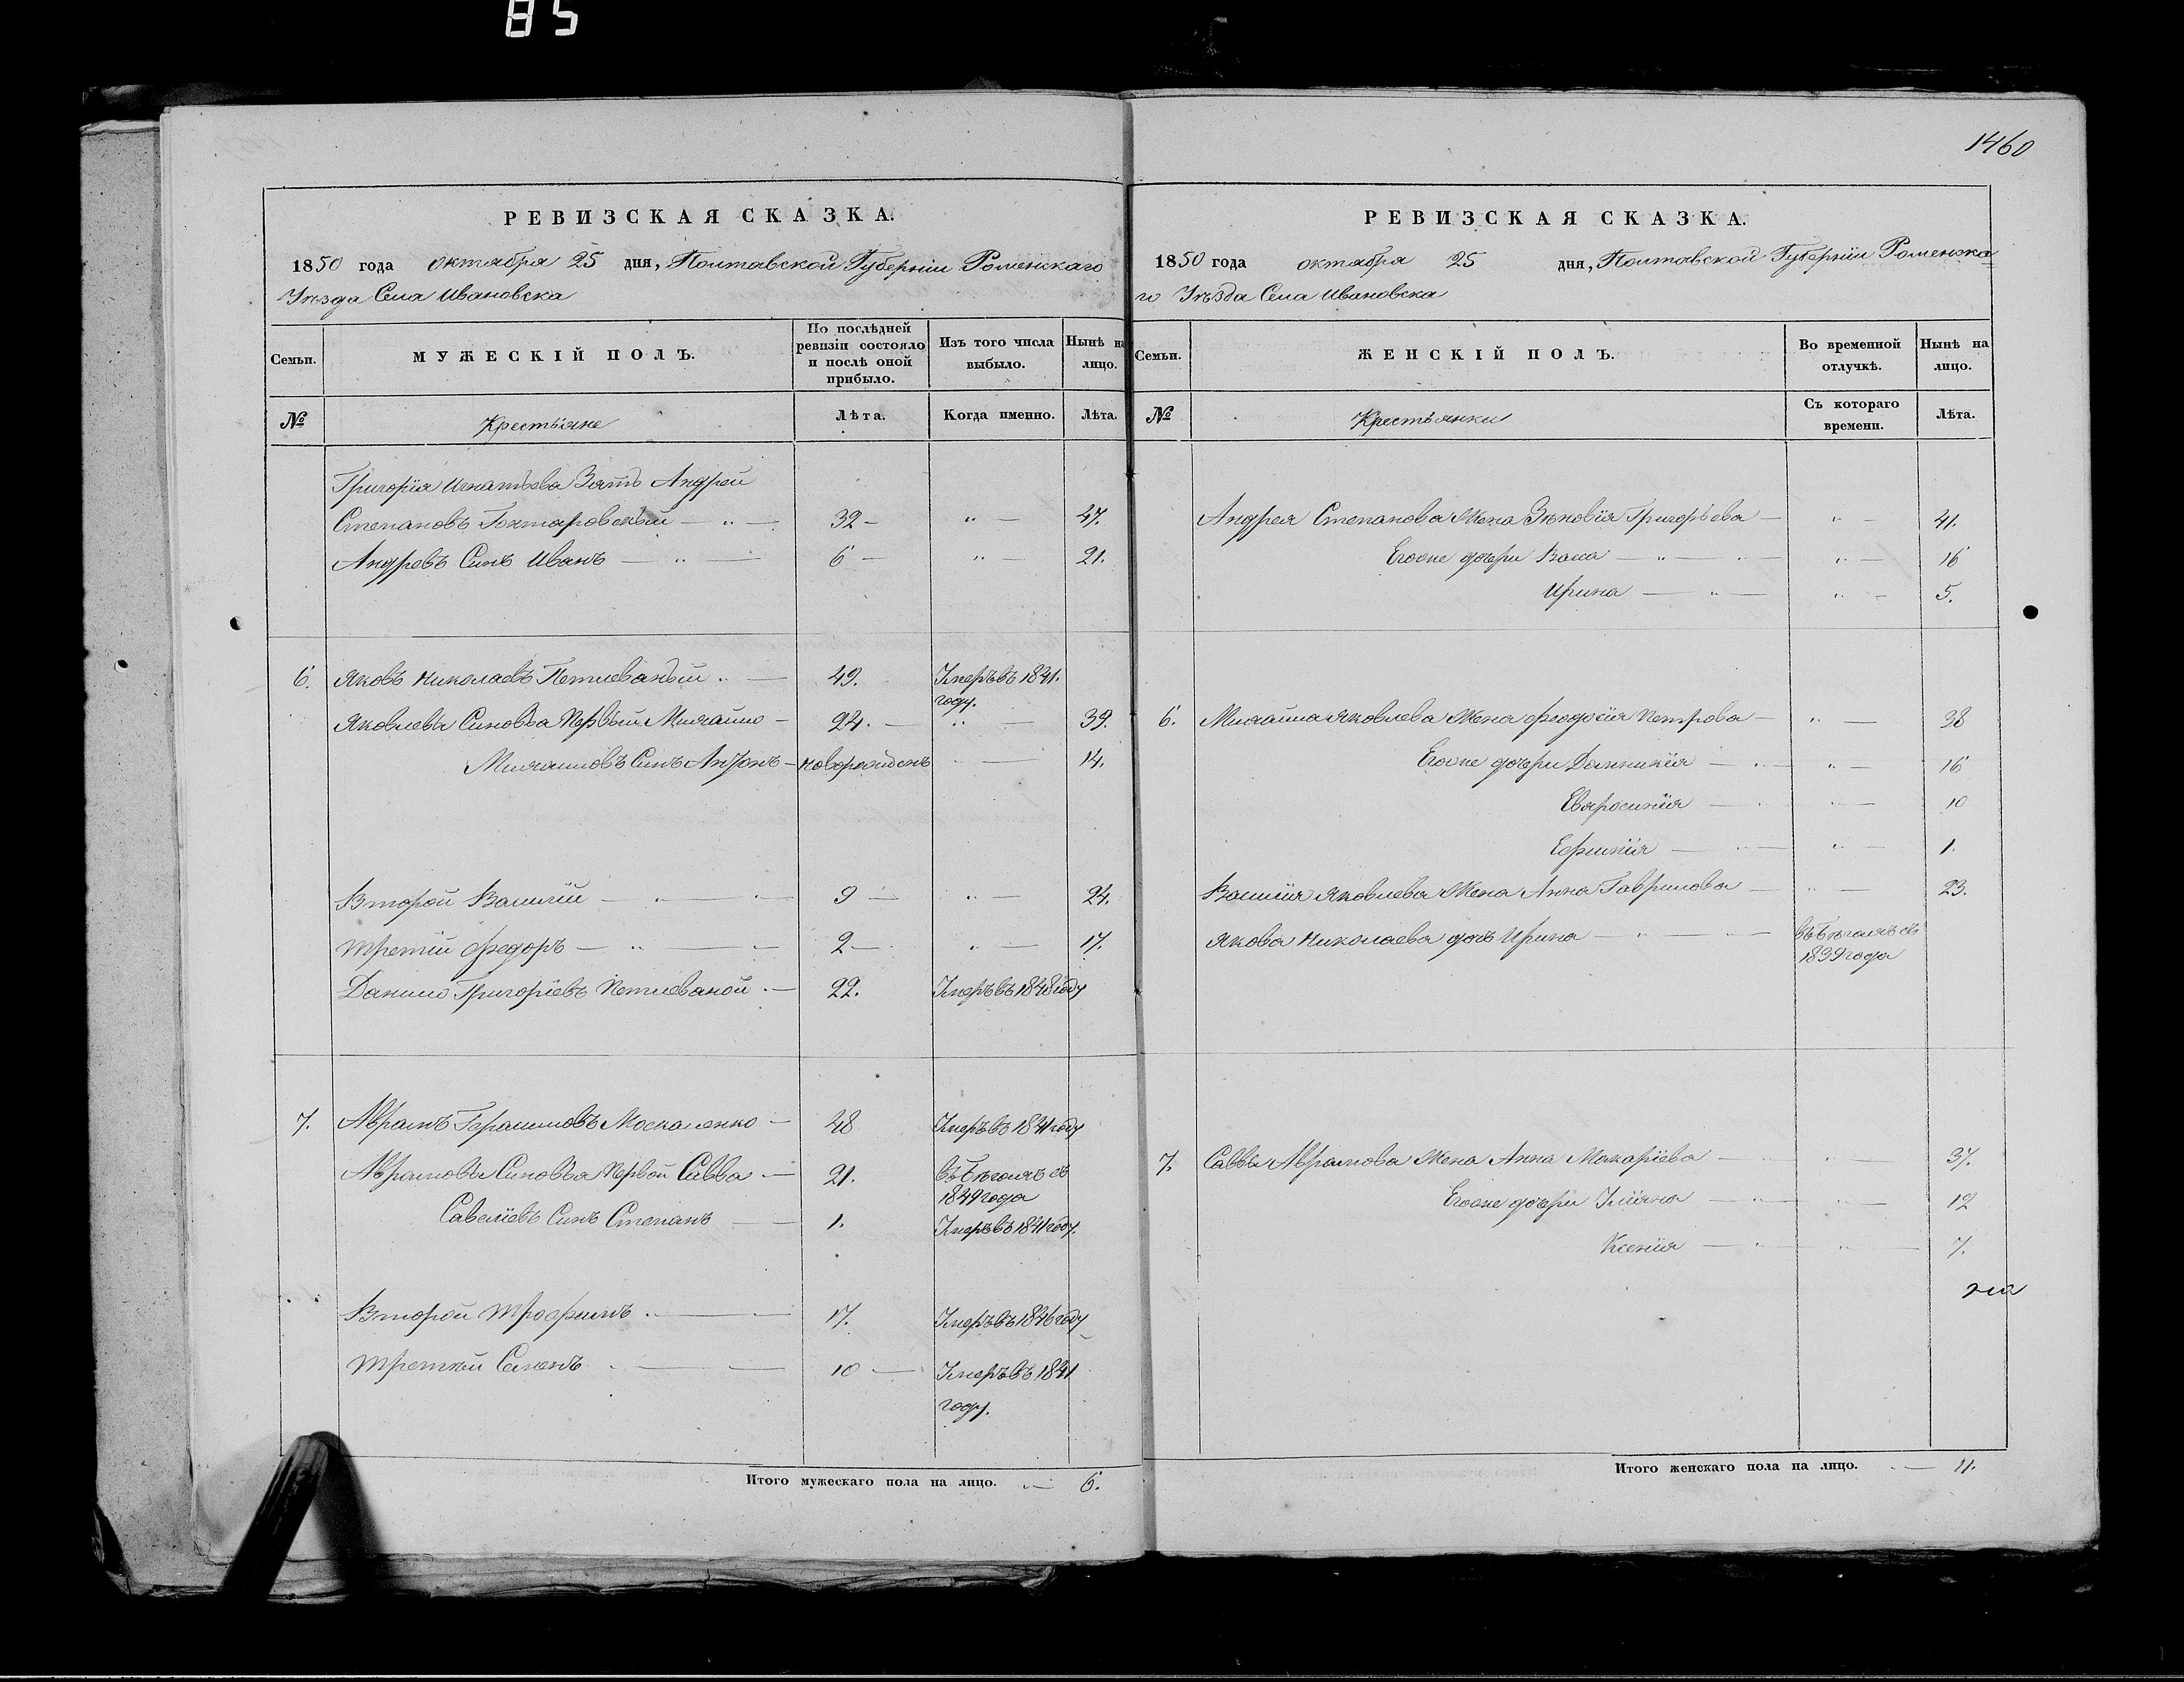 85
1460
РЕВИЗСКАЯ СКАЗКА.
1850 года октября 25 дня, Полтавской Губерніи Роменскаго
Уѣзда Села Ивановска
Семьи.
МУЖЕСКІЙ ПОЛЪ.
По послѣдней ревизіи состояло и послѣ оной прибыло.
Изъ того числа выбыло.
Нынѣ на лицо.
№
Крестьяне
Лѣта.
Когда именно.
Лѣта.
Григорія Игнатьева Зять Андрей
Степановъ — „ — 32 — „ — 47.
Андреевъ Синъ Иванъ — „ — 6 — „ — 21.
6. Яковъ Николаевъ Петлеваный „ — 49. Умеръ въ 1841.
году.
Яковлева Синовья Первый Михайло — 24. — „ — 39.
Михайловъ Синъ Антонъ — новорожденъ — 14.
Второй Василій — „ — „ 9 — „ — 24.
Третій Федоръ — „ — 2 — „ — 17.
Данило Григоріевъ Петлеваной . — 22. Умеръ въ 1848 году
7. Аврамъ Герасимовъ Москаленко — 48 Умеръ въ 1841 году
Аврамовы Синовья Первой Савва — 21. въ бѣгахъ съ
1849 года
Савеліевъ Синъ Степанъ — 1. Умеръ въ 1841 году.
Второй Трофимъ . — 17. Умеръ въ 1846 году
Третій Семенъ . — 10 — Умеръ въ 1841
году.
Итого мужескаго пола на лицо. „ — 6.
РЕВИЗСКАЯ СКАЗКА.
1850 года октября 25 дня, Полтавской Губерніи Роменска=
го Уѣзда Села Ивановска
Семьи.
ЖЕНСКІЙ ПОЛЪ.
Во временной отлучкѣ.
Нынѣ на лицо.
№
Крестьянки
Съ котораго времени.
Лѣта.
Андрея Степанова Жена Зѣновія Григорьева — „ — 41.
Егоже дочери Васса — „ — „ — 16
Ирина — „ — „ — 5.
6. Михайла Яковлева Жена Феодосія Петрова — „ — 38
Егоже дочери Домникія — „ — „ — 16
Евфросинія — „ — 10
— „ — 1.
Василія Яковлева Жена Анна Гаврилова — „ — 23.
Якова Николаева дочь Ирина — „ — въ бѣгахъ съ
1839 года
7. Саввы Аврамова Жена Анна Макаріева — „ — 37.
Егоже дочери Уліяна — „ — „ — 12
Ксенія — „ — „ — 7.
Итого женскаго пола на лицо. „ — 11.